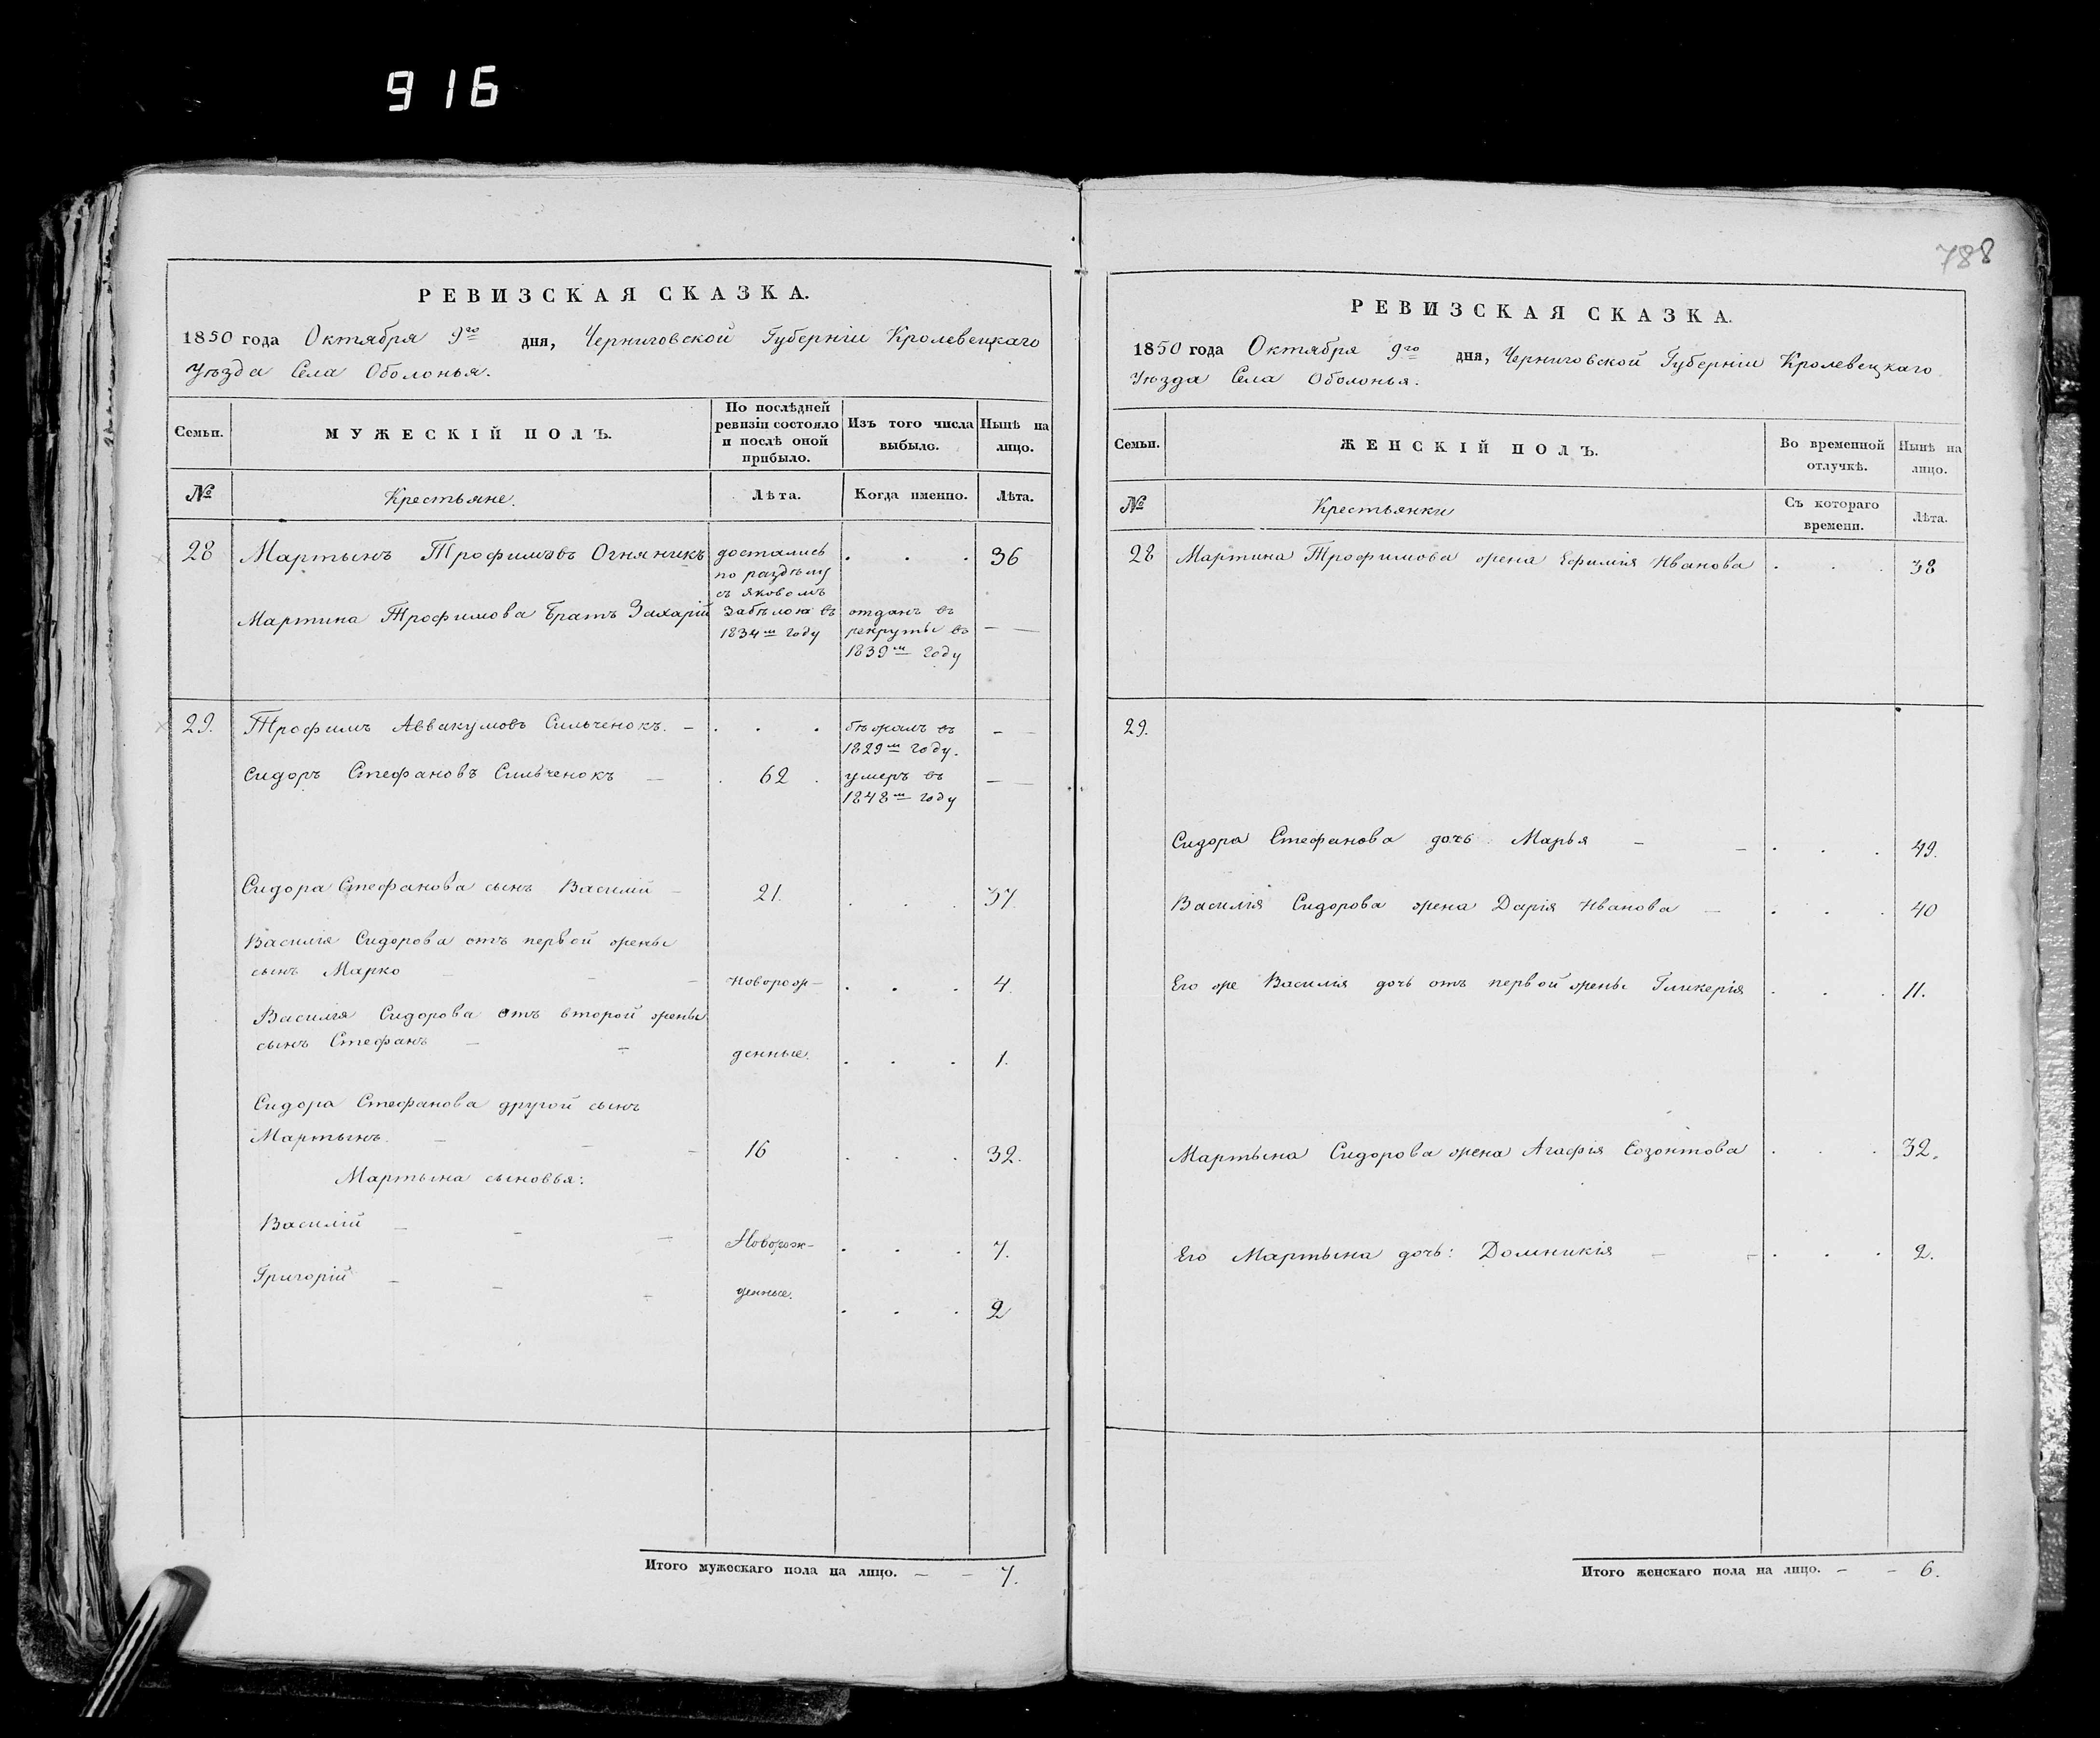 916
788
РЕВИЗСКАЯ СКАЗКА.
1850 года Октября 9го дня, Черниговской Губерніи Кролевецкаго
Уѣзда Села Оболонья.
Семьи.
МУЖЕСКІЙ ПОЛЪ.
По послѣдней
ревизіи состояло
и послѣ оной
прибыло.
Изъ того числа
выбыло.
Нынѣ на
лицо.
№
Крестьяне.
Лѣта.
Когда именно.
Лѣта.
28 Мартынъ Трофимовъ Огняникъ достались . . . 36
по раздѣлу
съ Яковомъ
Мартина Трофимова братъ Захарій Забѣлою въ отданъ въ —
1834м году рекруты въ
1839м году
29. Трофимъ Аввакумовъ Сильченокъ. — . . . бѣжалъ въ —
1829м году.
Сидоръ Стефановъ Сильченокъ — . 62 . умеръ въ —
1848м году
Сидора Стефанова сынъ Василій — 21. . . . 37.
Василія Сидорова отъ первой жены
сынъ Марко — — — Новорож— . . . 4.
Василія Сидорова отъ второй жены
сынъ Стефанъ — — денные. . . . 1.
Сидора Стефанова другой сынъ
Мартынъ. — — — 16 . . . 32.
Мартына сыновья:
Василій — — — Новорож— . . . 7.
Григорій — — — денные. . . . 2
Итого мужескаго пола на лицо. — — 7.
РЕВИЗСКАЯ СКАЗКА.
1850 года Октября 9го дня, Черниговской Губерніи Кролевецкаго
Уѣзда Села Оболонья.
Семьи.
ЖЕНСКІЙ ПОЛЪ.
Во временной
отлучкѣ.
Нынѣ на
лицо.
№
Крестьянки
Съ котораго
времени.
Лѣта.
28 Мартина Трофимова жена Ефимія Иванова . . . 38
29.
Сидора Стефанова дочь Марья — — . . . 49.
Василія Сидорова жена Дарія Иванова — . . . 40
Его же Василія дочь отъ первой жены Гликерія . . . 11.
Мартына Сидорова жена Агафія Созонтова . . . 32.
Его Мартына дочь: Домникія — — . . . 2.
Итого женскаго пола на лицо. — — 6.